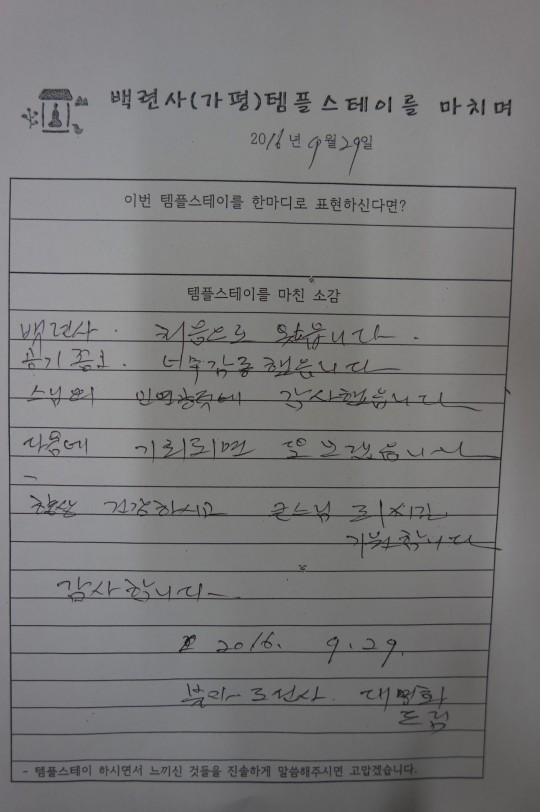 백련사(가평)템플스테이를 마치며
2016년 9월 29일
이번 템플스테이를 한마디로 표현하신다면?
템플스테이를 마친 소감
백련사. 처음으로 왔읍니다.
공기 좋고. 너무 감동했읍니다
스님의 감사했읍니다
다음에 기회되면 또 오겠읍니다
항상 건강하시고 큰스님 되시길
기원합니다
감사합니다
2016. 9. 29.
대명화
드림
- 템플스테이 하시면서 느끼신 것들을 진솔하게 말씀해주시면 고맙겠습니다.